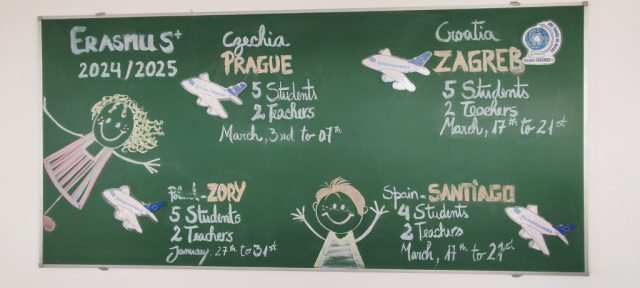 ERASMUS+
2024/2025
Czechia
PRAGUE
5 Students
2 Teachers
March, 3rd to 07th
Croatia
ZAGREB
5 Students
2 Teachers
March, 17th to 21st
Poland - ZORY
5 Students
2 Teachers
January, 27th to 31st
Spain - SANTIAGO
4 Students
2 Teachers
March, 17th to 21st